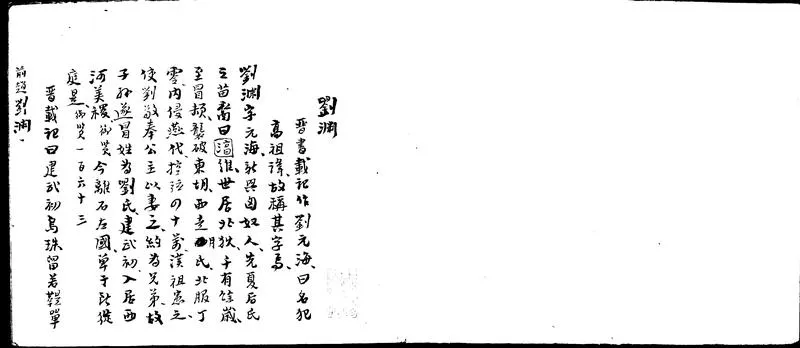 劉淵
晋書載記作劉元海曰名犯
高祖諱故稱其字焉
劉淵字元海新興匈奴人先夏后氏
之苗裔曰淳維世居北狄千有餘歳
至冒頓襲破東胡西走月氏北服丁
零内侵燕代控弦四十萬漢祖患之
使劉敬奉公主以妻之約為兄弟故
子孫遂冒姓為劉氏建武初入居西
河美稷御覧今離石左國單于所徙
庭是御覧一百六十三
晋載記曰建武初烏珠留若鞮單
前趙劉渕